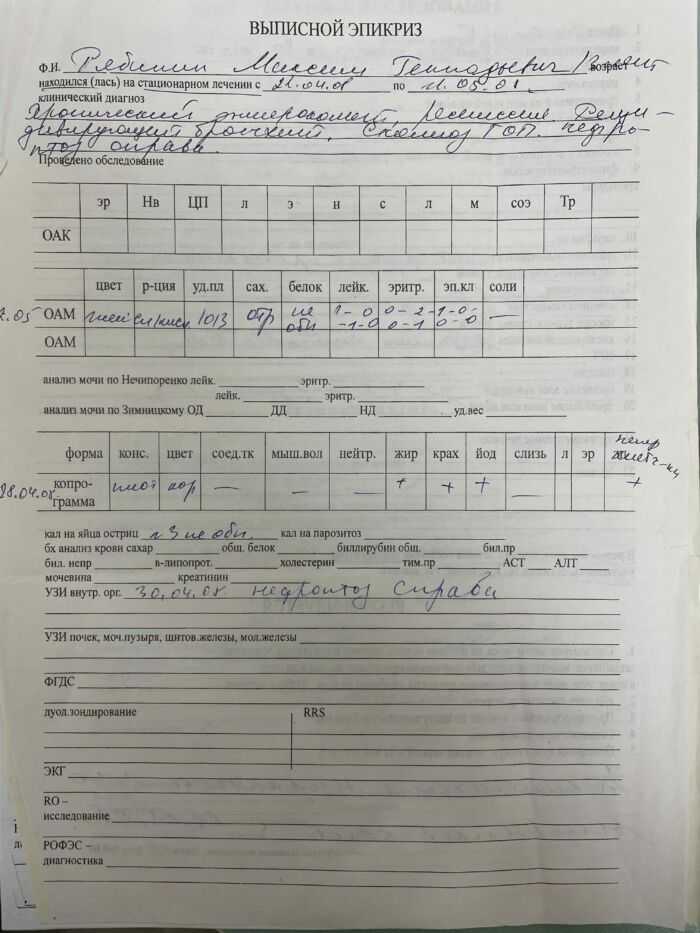 ВЫПИСНОЙ ЭПИКРИЗ
Ф.И. Рябинин Максим Геннадьевич возраст
находился (лась) на стационарном лечении с 21.04.08 по 11.05.01
клинический диагноз
Хронический энтероколит, ремиссия. Реци-
дивирующий бронхит. Сколиоз ГОП. нефро-
птоз справа.
Проведено обследование
эр Нв ЦП л э н с л м соэ Тр
ОАК
цвет р-ция уд.пл сах. белок лейк. эритр. эп.кл соли
.05 ОАМ 1013 отр не обн 1-0 -1-0 0-2- 0-1 1-0- 0-0 —
ОАМ
анализ мочи по Нечипоренко лейк. эритр.
лейк. эритр.
анализ мочи по Зимницкому ОД ДД НД уд.вес
форма конс. цвет соед.тк мыш.вол нейтр. жир крах йод слизь л эр
28.04.08 копро- плот кор — — — + + + — +
грамма
кал на яйца остриц №3 не обн. кал на паразитоз
бх анализ крови сахар общ. белок биллирубин общ. бил.пр
бил. непр в-липопрот. холестерин тим.пр АСТ АЛТ
мочевина креатинин
УЗИ внутр. орг. 30.04.08 нефроптоз справа
УЗИ почек, моч.пузыря, щитов.железы, мол.железы
ФГДС
дуод.зондирование RRS
ЭКГ
RO –
исследование
РОФЭС –
диагностика